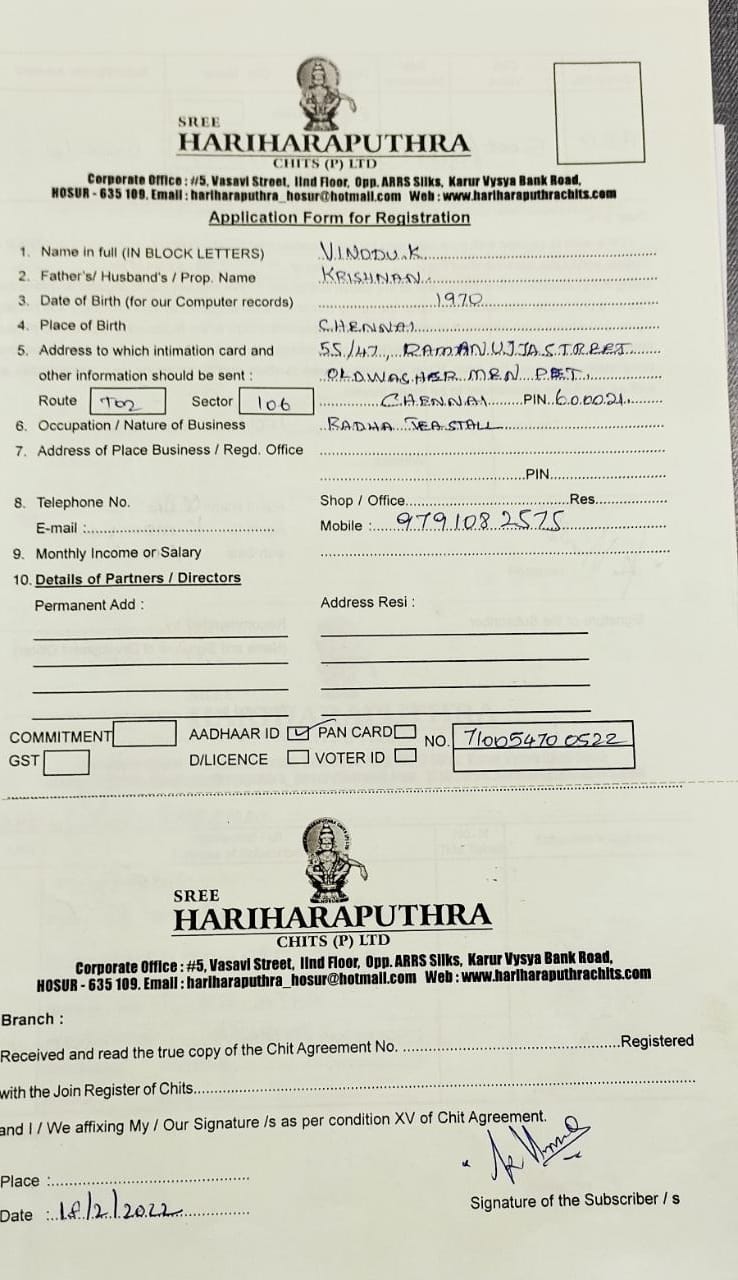 SREE
HARIHARAPUTHRA
CHITS (P) LTD
Corporate Office : #5, Vasavi Street, IInd Floor, Opp. ARRS Silks, Karur Vysya Bank Road,
HOSUR - 635 109. Email : hariharaputhra_hosur@hotmail.com Web : www.hariharaputhrachits.com
Application Form for Registration
1. Name in full (IN BLOCK LETTERS) VINODU.K
2. Father's/ Husband's / Prop. Name KRISHNAN.
3. Date of Birth (for our Computer records) 1970
4. Place of Birth CHENNAI
5. Address to which intimation card and 55/47, RAMANUJJA STREET
other information should be sent : OLD WASHER MEN PET,
Route T02 Sector 106 CHENNAI PIN 600021
6. Occupation / Nature of Business RADHA TEA STALL
7. Address of Place Business / Regd. Office
PIN
8. Telephone No. Shop / Office Res.
E-mail : Mobile : 9791082575
9. Monthly Income or Salary
10. Details of Partners / Directors
Permanent Add : Address Resi :
COMMITMENT AADHAAR ID ✓ PAN CARD NO. 710054700522
GST D/LICENCE VOTER ID
SREE
HARIHARAPUTHRA
CHITS (P) LTD
Corporate Office : #5, Vasavi Street, IInd Floor, Opp. ARRS Silks, Karur Vysya Bank Road,
HOSUR - 635 109. Email : hariharaputhra_hosur@hotmail.com Web : www.hariharaputhrachits.com
Branch :
Received and read the true copy of the Chit Agreement No. Registered
with the Join Register of Chits
and I / We affixing My / Our Signature /s as per condition XV of Chit Agreement.
Place :
Date : 18/2/2022 Signature of the Subscriber / s